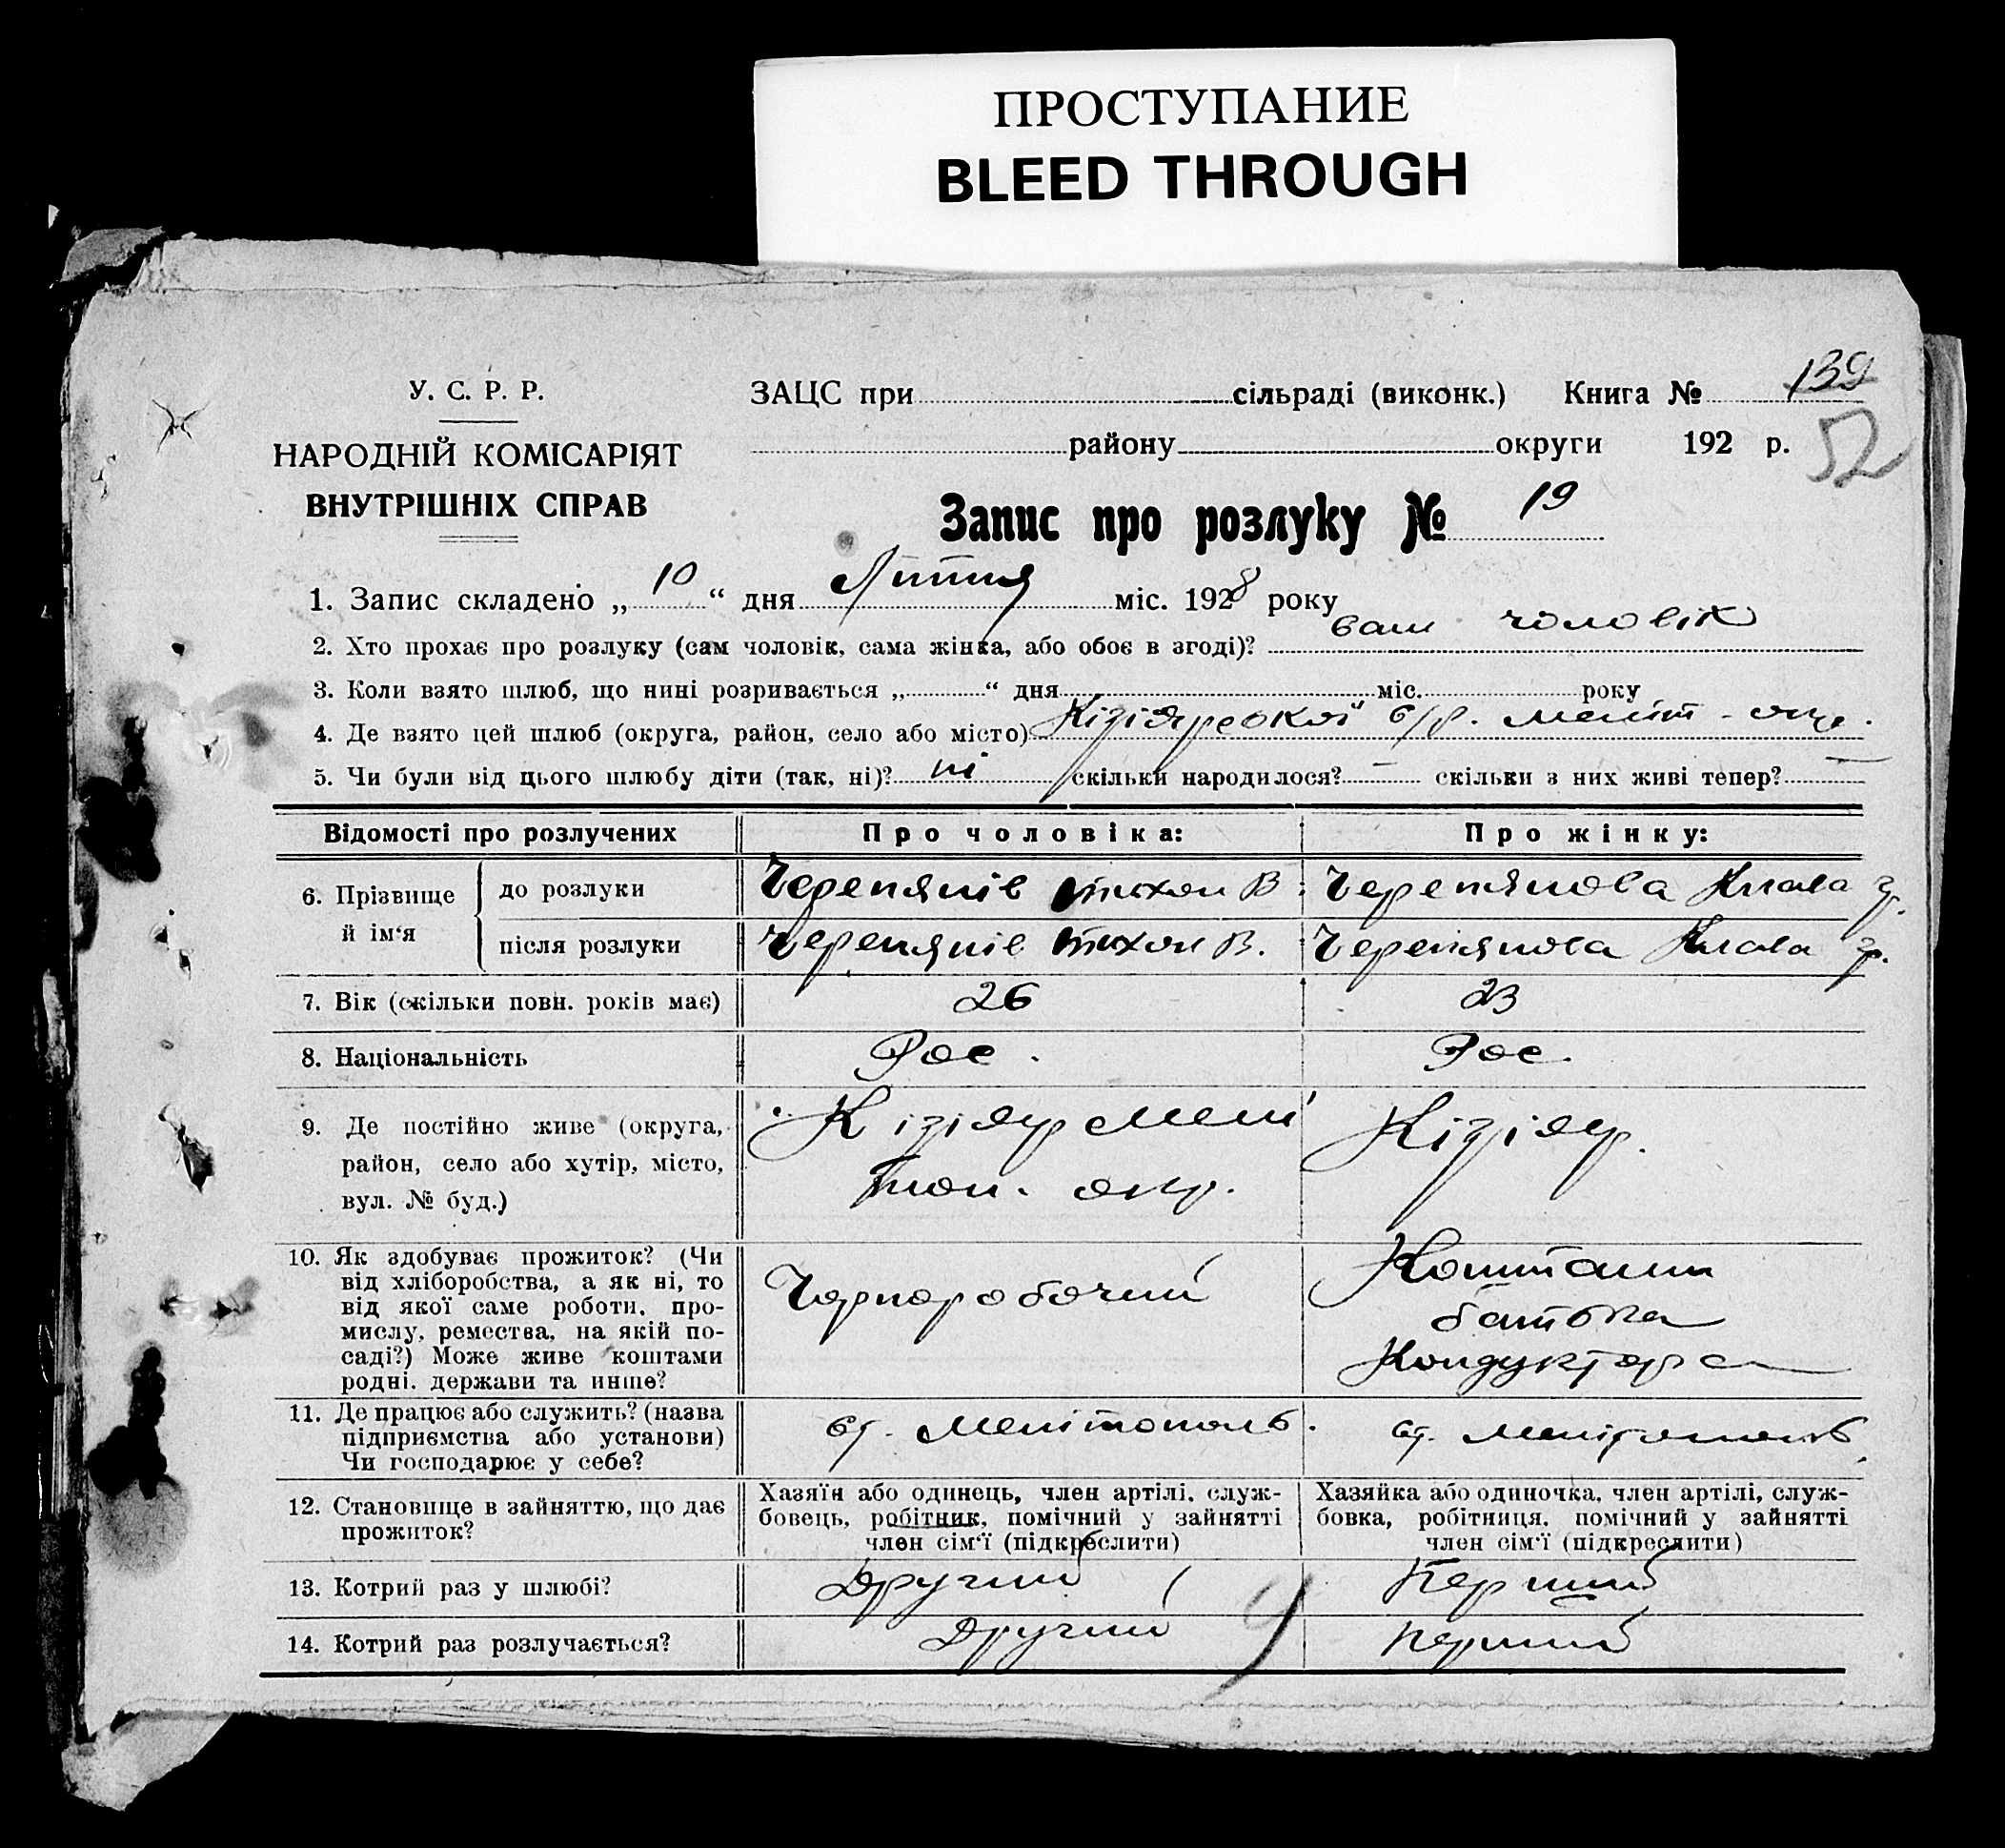 ПРОСТУПАНИЕ
BLEED THROUGH
139
У. С. Р. Р.
ЗАЦС при сільраді (виконк.) Книга №
52
НАРОДНІЙ КОМІСАРІЯТ
району округи 192 р.
ВНУТРІШНІХ СПРАВ
Запис про розлуку № 19
1. Запис складено „ 10 “ дня Липня міс. 1928 року
2. Хто прохає про розлуку (сам чоловік, сама жінка, або обоє в згоді)? сам чоловік
3. Коли взято шлюб, що нині розривається „ “ дня міс. року
4. Де взято цей шлюб (округа, район, село або місто) Кізіярської с/р. Меліт-окр.
5. Чи були від цього шлюбу діти (так, ні)? ні скільки народилося? — скільки з них живі тепер? —
Відомості про розлучених Про чоловіка: Про жінку:
6. Прізвище й ім‘я
до розлуки Черепянів Тихон В. Черепянова Клава Гр.
після розлуки Черепянів Тихон В. Черепянова Клава Гр.
7. Вік (скільки повн. років має) 26 23
8. Національність Рос. Рос.
9. Де постійно живе (округа,
район, село або хутір, місто,
вул. № буд.)
Кізіяр Мелі
топ. окр.
Кізіяр.
10. Як здобуває прожиток? (Чи
від хліборобства, а як ні, то
від якої саме роботи, про-
мислу, ремества, на якій по-
саді?) Може живе коштами
родні, держави та инше?
Чорноробочий
Коштами
батька
Кондуктора
11. Де працює або служить? (назва
підприємства або установи)
Чи господарює у себе?
ст. Мелітополь.
ст. Мелітополь
12. Становище в зайняттю, що дає
прожиток?
Хазяїн або одинець, член артілі, служ-
бовець, робітник, помічний у зайнятті
член сім‘ї (підкреслити)
Хазяйка або одиночка, член артілі, служ-
бовка, робітниця, помічний у зайнятті
член сім‘ї (підкреслити)
13. Котрий раз у шлюбі? Другий Перший
14. Котрий раз розлучається? Другий Перший
9